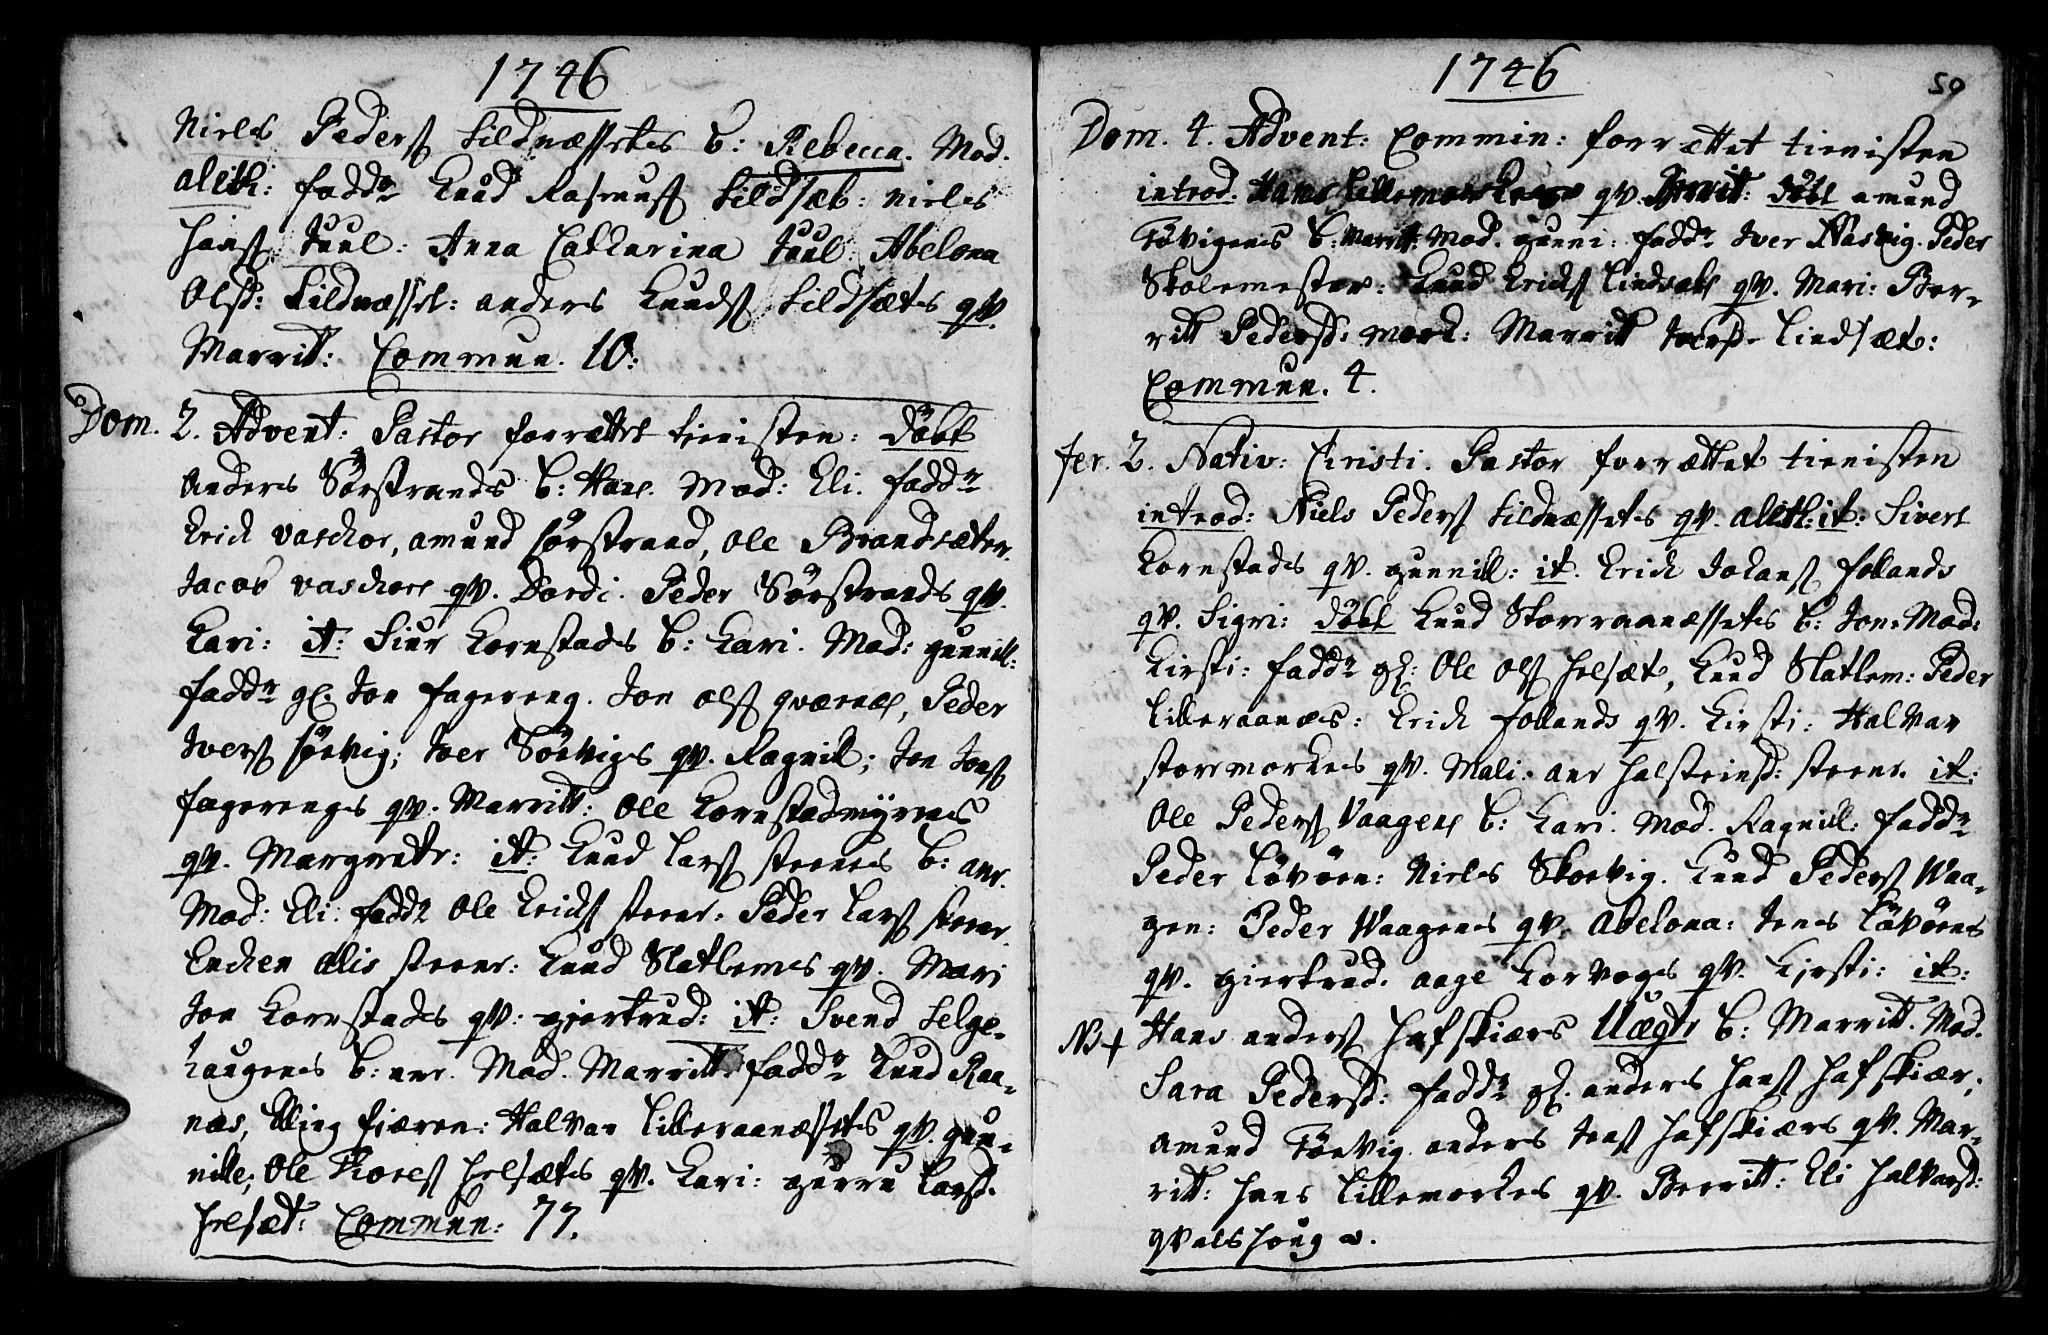 1746
Niels Peders Sildnæssets b: Rebecca. Mod.
aleth: fadd Knud Rasmus Sildsæb: niels
hans Juul: Anna Catharina Juul: Abelona
Olsd: Sildnæsset: anders Knuds Sildsætes qv.
Marritt: Commun. 10:
Dom. 2. Advent: Pastor forrættet tienisten: döbt
anders Sörstrands b: Hans. Mod: Eli. fadd
Erich vaschor, amund sörstrand, ole Brandsæter.
Jacob vaschors qv. Dordi. Peder Sörstrands qv.
Kari: it: Siur Kornstads b: Kari. Mod: gunnil:
fadd gl Jon fagereng. Jon ols qværnes, Peder
Ivers sörvig; Iver Sörvigs qv. Ragnill; Jon Jons
fagerengs qv. Marritt: Ole Kornstadmyrens
qv. Margrete: it: Knud Lars steenes b: ane.
Mod: Eli: fadd Ole Erichs steene: Peder Lars steene.
Enchen alis steene: Knud Slatlemes qv. Mari
Jon Kornstads qv: gjertrud: it: Svend Selge-
haugenes b: ane. Mod. Marritt: fadd Knud Raa-
næs, Elling fiæren: Halvar Lilleraanæssets qv. gun-
nille; Ole Thores helsæts qv. Kari: guru Larsd.
helsæt: Commun: 77.
1746
50
Dom. 4. Advent: Commin: forrættet tienisten
introd. Hans Lillemorkens qv. Berit: döbt amund
Tövigens b: Marrit: Mod. gunni: fadd Iver Nasvig. Peder
Skolemester: Knud Erichs Lindsæt qv. Mari: Ber-
ritt Pedersd: mork: Marritt Iversd. Lindsæt:
Commun. 4.
fer. 2. Nativ: Christi. Pastor forrættet tienisten
introd: Niels Peders Sildnæssets qv. aleth: it: Sivert
Kornstads qv. gunnill: it. Erich Johans follands
qv. Sigri: döbt Knud Storraanæssets b: Jon: Mod:
Kirsti: fadd gl: Ole Ols helsæt, Knud Slatlem: Peder
Lilleraanæs: Erich follands qv. Kirsti: Halvar
stormorkens qv. Mali. ane halsteinsd: steene. it:
Ole Peders Vaagens b: Kari. Mod. Ragnill: fadd
Peder Lövöen: Niels Skorvig. Knud Peders Waa-
gen: Peder Waagens qv. Abelona: Jens Lövöens
qv. giertrud. aage Korvogs qv. Kirsti: it:
NB+ Hans anders hafskiærs Uægte b: Marritt. Mod.
Sara Pedersd: fadd gl. anders hans hafskiær,
amund Törvig anders Jens hafskiærs qv. Mar-
ritt: hans Lillemorkes qv. Berritt: Eli halvarsd:
qvalshoug